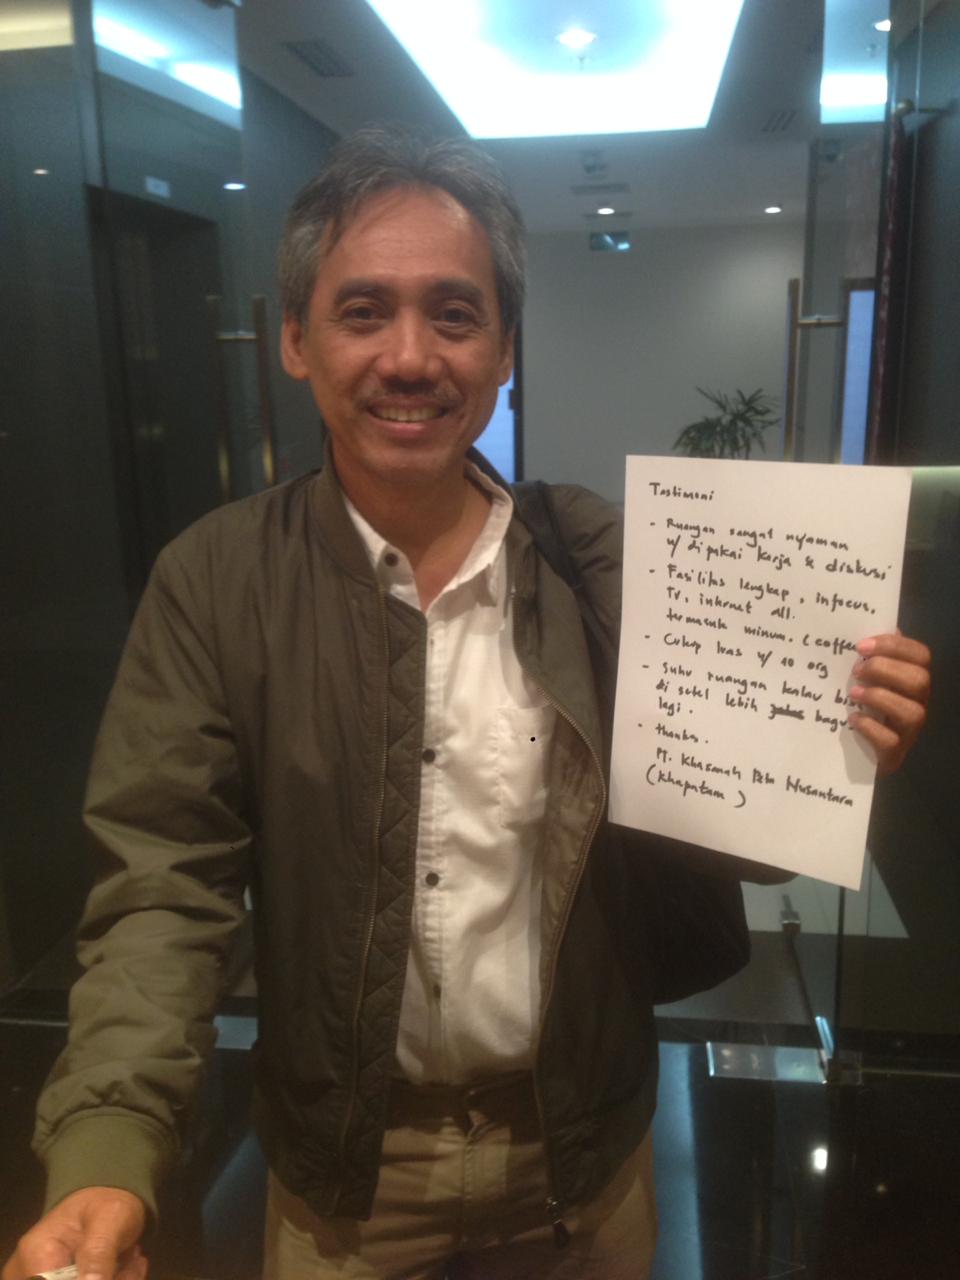 Testimoni
- Ruangan sangat nyaman
w/ dipakai kerja & diskusi
- Fasilitas lengkap, infocus,
TV, internet all.
termasuk minum. (coffee
- Cukup luas w/ 10 org
- Suhu ruangan kalau bisa
di setel lebih bagus
lagi.
- thanks.
PT. Khasanah Nusantara
(Khapatam)